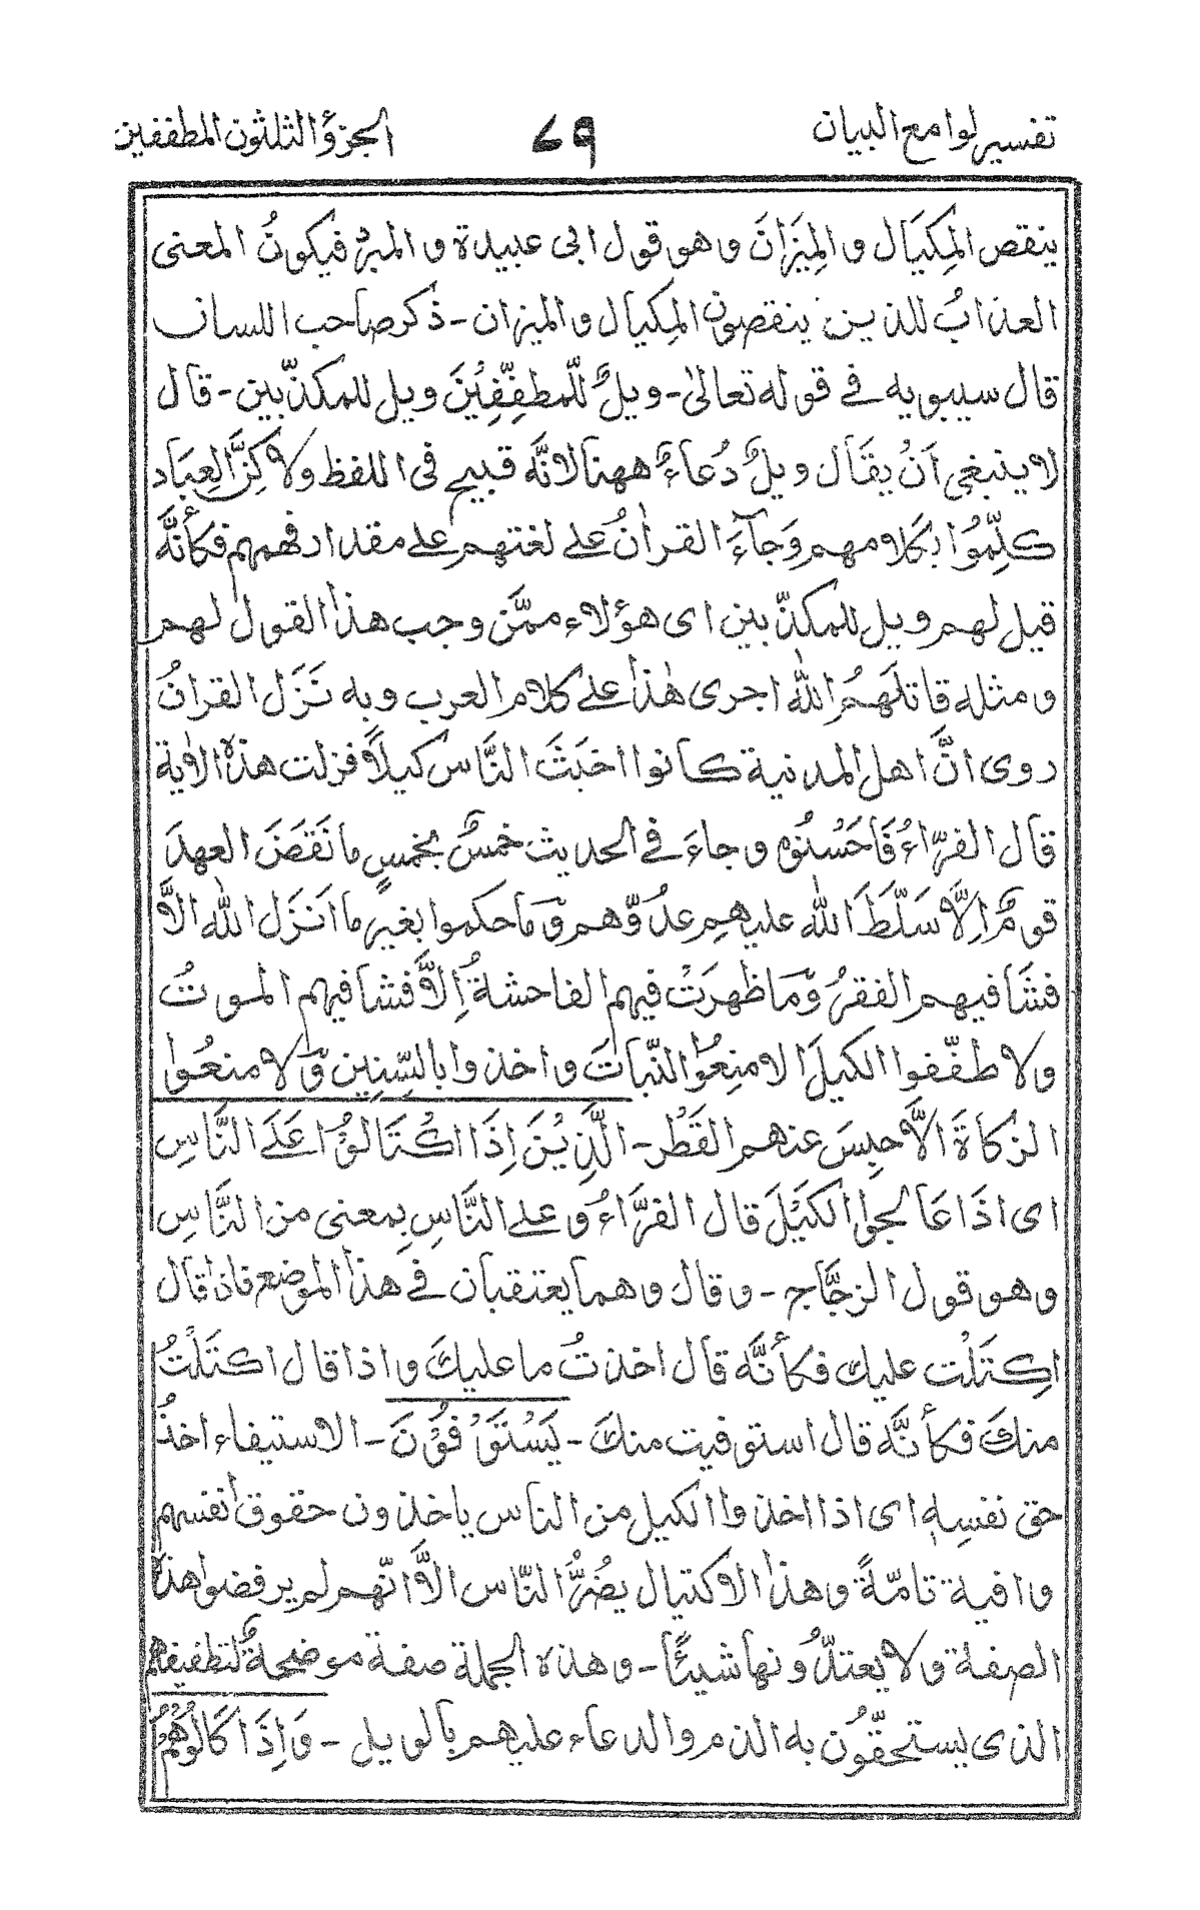 تفسير لوامع البيان ٦٩ الجزؤ الثلثون المطففين
ينقص المِكيَال و المِيزَانَ و هو قول ابى عبيدة و المبرد فيكونُ المعنى
العذابُ للذين ينقصون المِكيال و الميزان - ذكر صاحب اللسان
قال سيبويه فى قوله تعالىٰ - ويلٌ لّلمطفِّفِيْنَ ويل للمكذّبين - قال
لا ينبغى اَنْ يقَال ويلٌ دُعاءٌ ههنا لانَّه قبيح فى اللفظ و لاكِنَّ العِبَاد
كلِّمُوا بكلامهم وَجَآءَ القراٰنُ على لغتهم على مقدار فهمهم فكأنَّهٗ
قيل لهم ويل للمكذّبين اى هؤلاء ممَّن وجب هذا القول لهم
و مثله قاتلَهمُ اللّٰه اجرى هٰذا على كلام العرب و به نَزَل القراٰنُ
روى انَّ اهل المدنية كانوا اخبَثَ النَّاس كيلاً فزلت هذه الاٰية
قال الفرّاءُ فَاحَسْنُوْه و جاءَ فى الحديث خمسٌ بخمسٍ ما نَقَضَ العهدَ
قومٌ اِلَّا سَلّطَ اللّٰه عليهِم عدُوّهم وَمَا حكموا بغير ما انَزَل اللّٰه الاَّ
فشَا فيهم الفقرُ وَمَا ظهرَتْ فيهم الفاحشةُ اِلاَّ فشا فيهم الموتُ
ولا طفّفوا الكيلَ الا منِعُوا النّباتَ و اخذوا بالسِّنِين وَلا منعُوا
الزكاةَ الاَّ حبِسَ عنهم القَطْر - الَّذِيْنَ اِذَا اكْتَالُوْا عَلَى النَّاسِ
اى اذَا عَالجوا الكَيْلَ قال الفرَّاءُ و على النَّاسِ بِمعنى من النَّاسِ
و هو قول الزجَّاج - و قال و هما يعتقبان فى هذا الموضع فاذا قال
اِكتَلْت عليك فكأنَّهٗ قال اخذتُ ما عليكَ و اذا قال اكتَلْتُ
منكَ فكأنَّه قال استوفيت منكَ - يَسْتَوْفُوْنَ - الاستيفاء اخذُ
حق نفسِهٖ اى اذا اخذوا الكيل من الناس ياخذون حقوق انفسهم
وافية تامّةً و هذا الاكتيال يضُرُّ النّاس الاَّ انّهم لم يرفضوا هذه
الصفة و لا يعتدُّونها شيئًا - و هذه الجملة صفة موضحةٌ لتطفيفهم
الذى يستحقّون به الذم و الدعاء عليهم بالويل - وَ اِذَا كَالُوْهُمْ